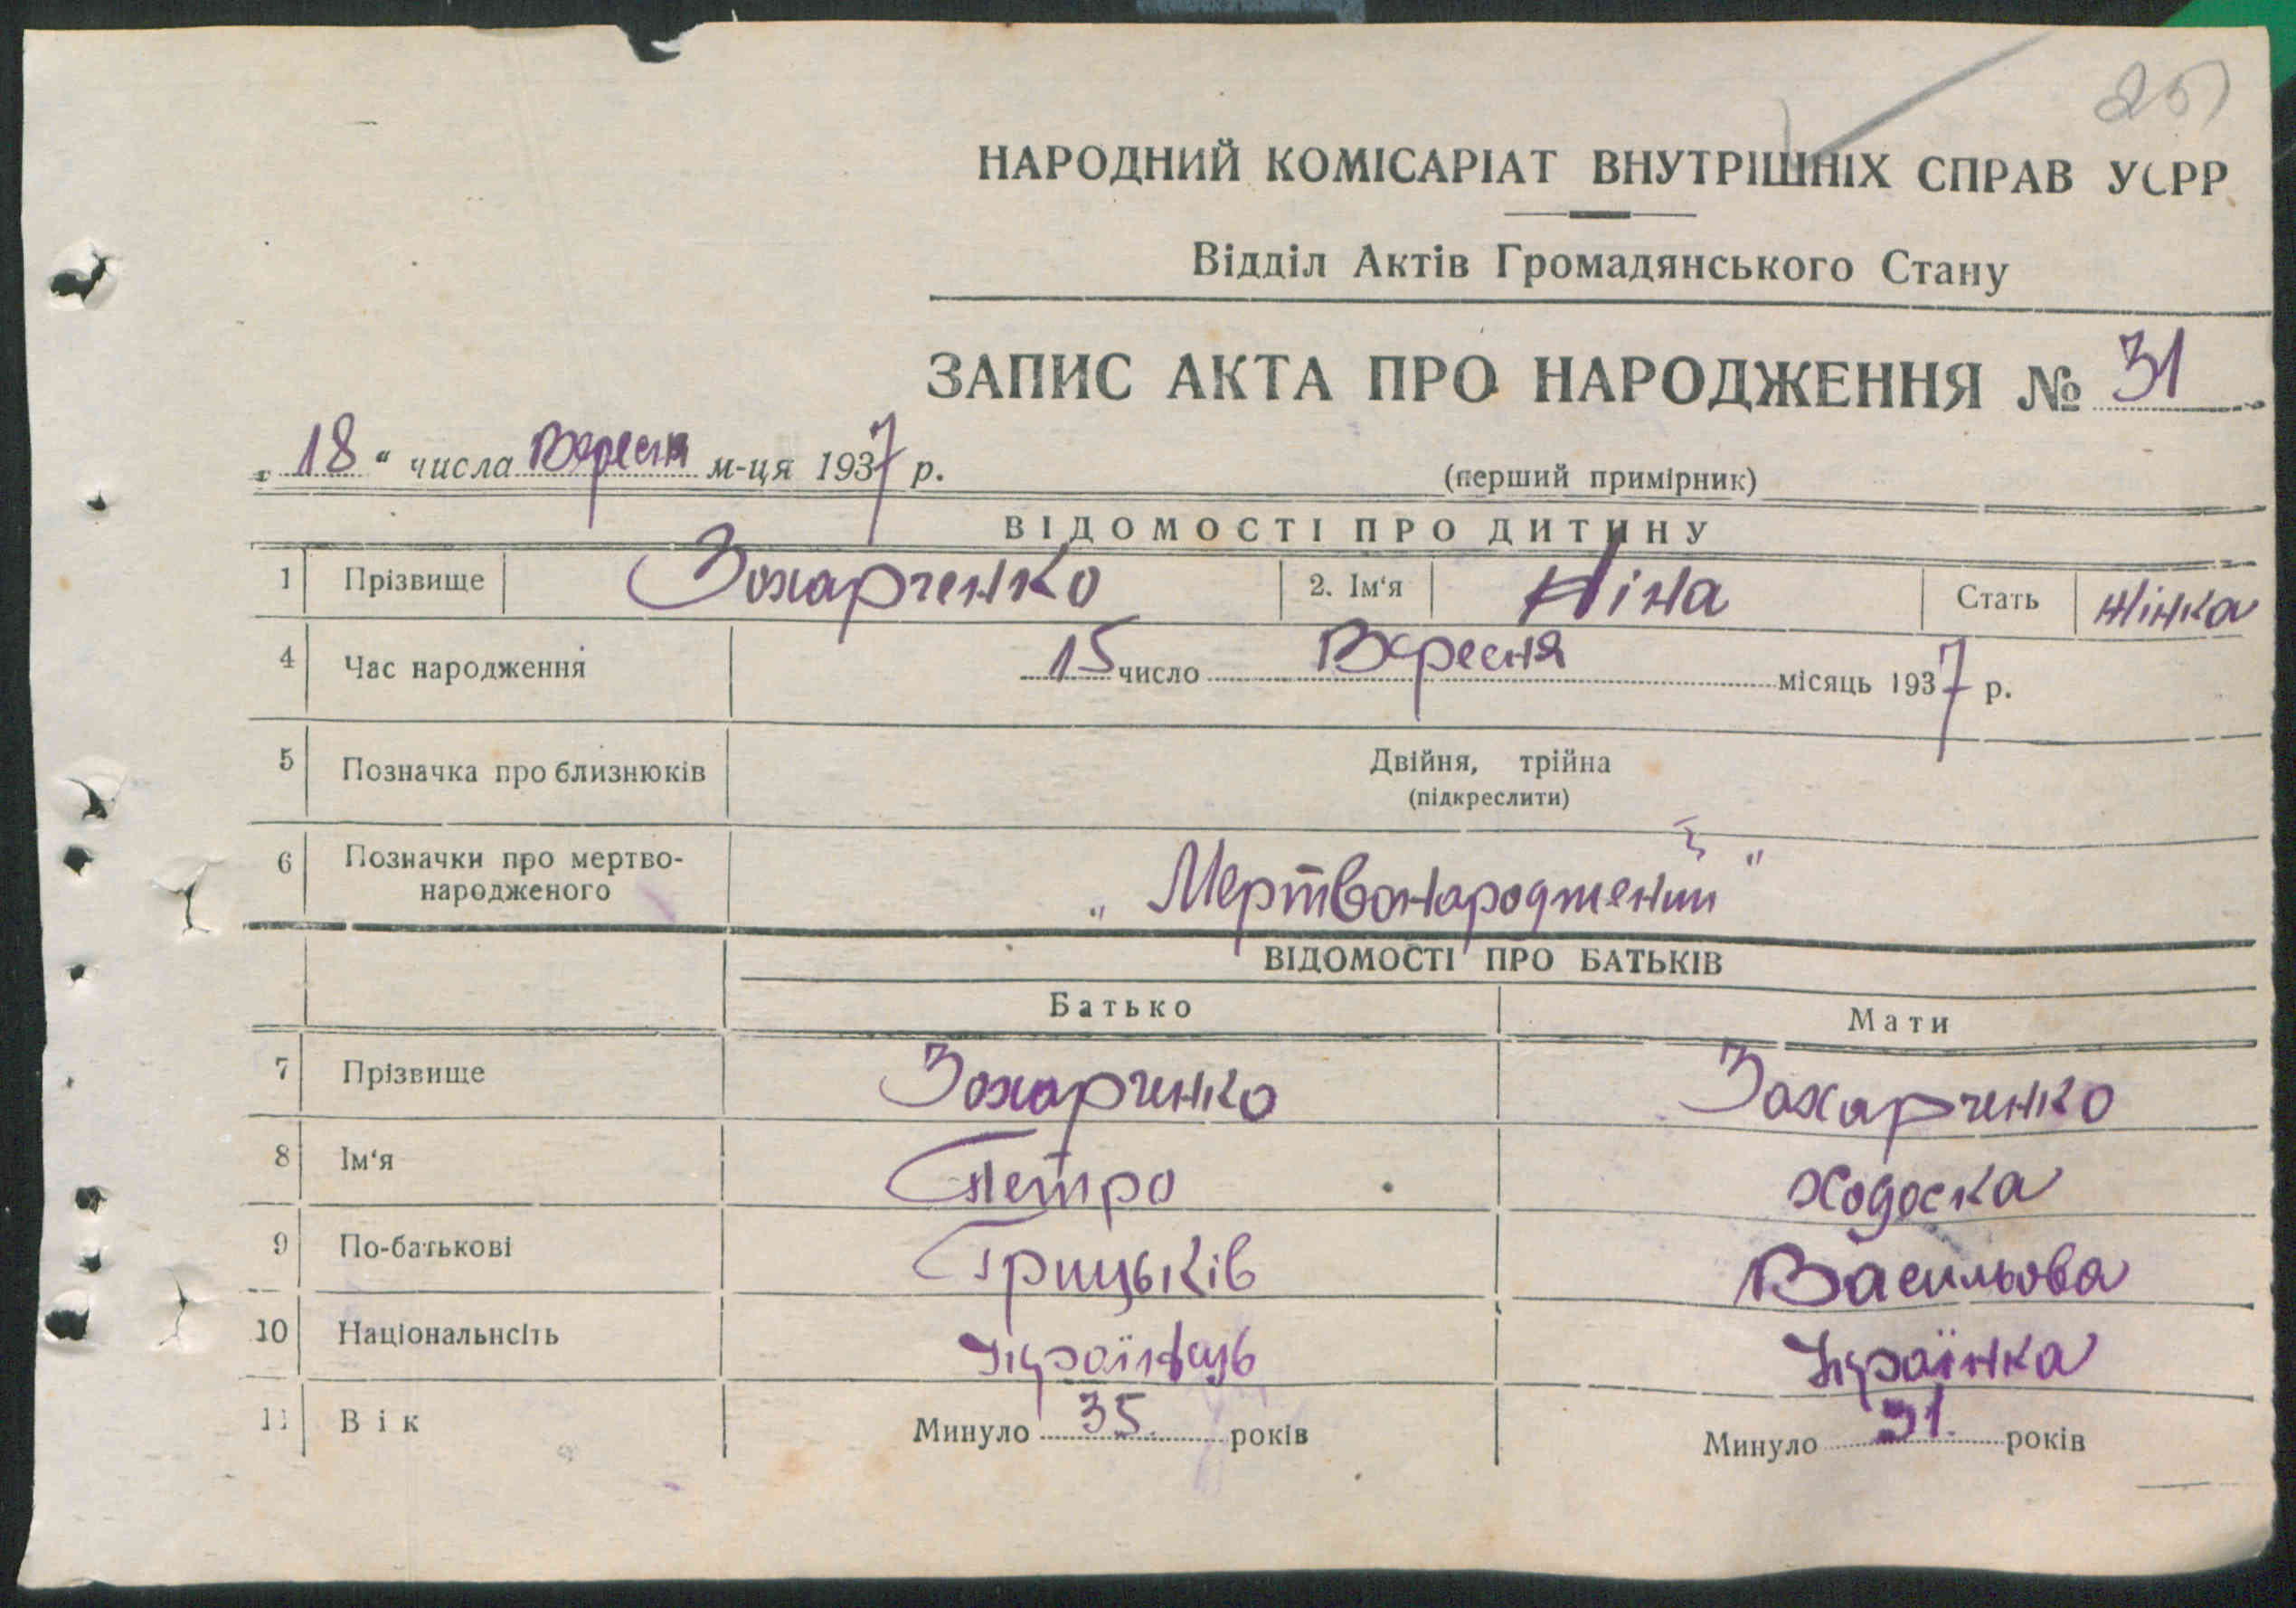 25
НАРОДНИЙ КОМІСАРІАТ ВНУТРІШНІХ СПРАВ УСРР
Відділ Актів Громадянського Стану
ЗАПИС АКТА ПРО НАРОДЖЕННЯ № 31
„ 18 “ числа Вересня м-ця 1937 р.
(перший примірник)
ВІДОМОСТІ ПРО ДИТИНУ
1 Прізвище Захарченко 2. Ім‘я Ніна Стать жінка
4 Час народження 15 число Вересня місяць 1937 р.
5 Позначка про близнюків Двійня, трійна
(підкреслити)
6 Позначки про мертво-
народженого „ Мертвонароджений "
ВІДОМОСТІ ПРО БАТЬКІВ
Батько Мати
7 Прізвище Захарченко Захарченко
8 Ім‘я Петро Ходоска
9 По-батькові Грицьків Васильова
10 Національнсіть Українець Українка
11 Вік Минуло 35 років Минуло 31 років